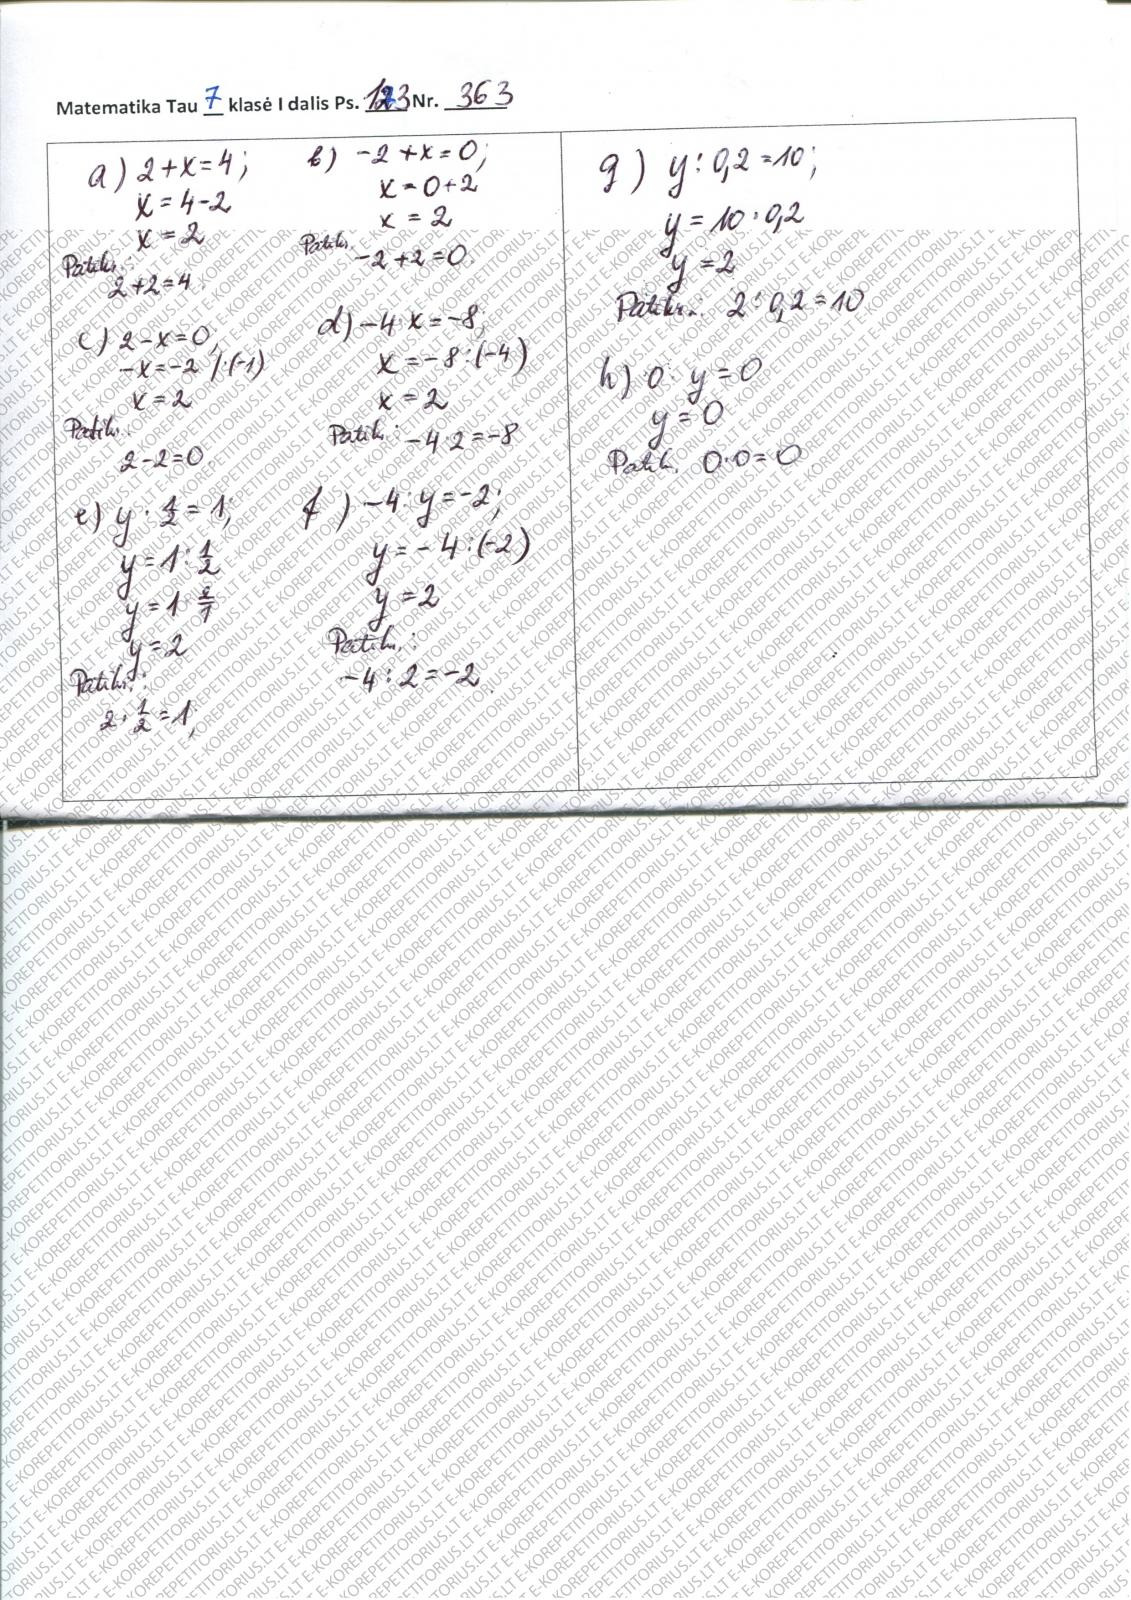 Matematika Tau 7 klasė I dalis Ps. 123 Nr. 363
a) 2+x=4;
x=4-2
x=2
Patikr.:
2+2=4
b) -2+x=0;
x=0+2
x=2
Patikr.
-2+2=0
c) 2-x=0;
-x=-2 /·(-1)
x=2
Patikr.:
2-2=0
d) -4·x=-8;
x=-8:(-4)
x=2
Patikr.: -4·2=-8
e) y·1/2=1;
y=1:1/2
y=1·2/1
y=2
Patikr.:
2·1/2=1;
f) -4:y=-2;
y=-4:(-2)
y=2
Patikr.:
-4:2=-2
g) y:0,2=10;
y=10·0,2
y=2
Patikr.: 2:0,2=10
h) 0·y=0
y=0
Patikr. 0·0=0
E-KOREPETITORIUS.LT